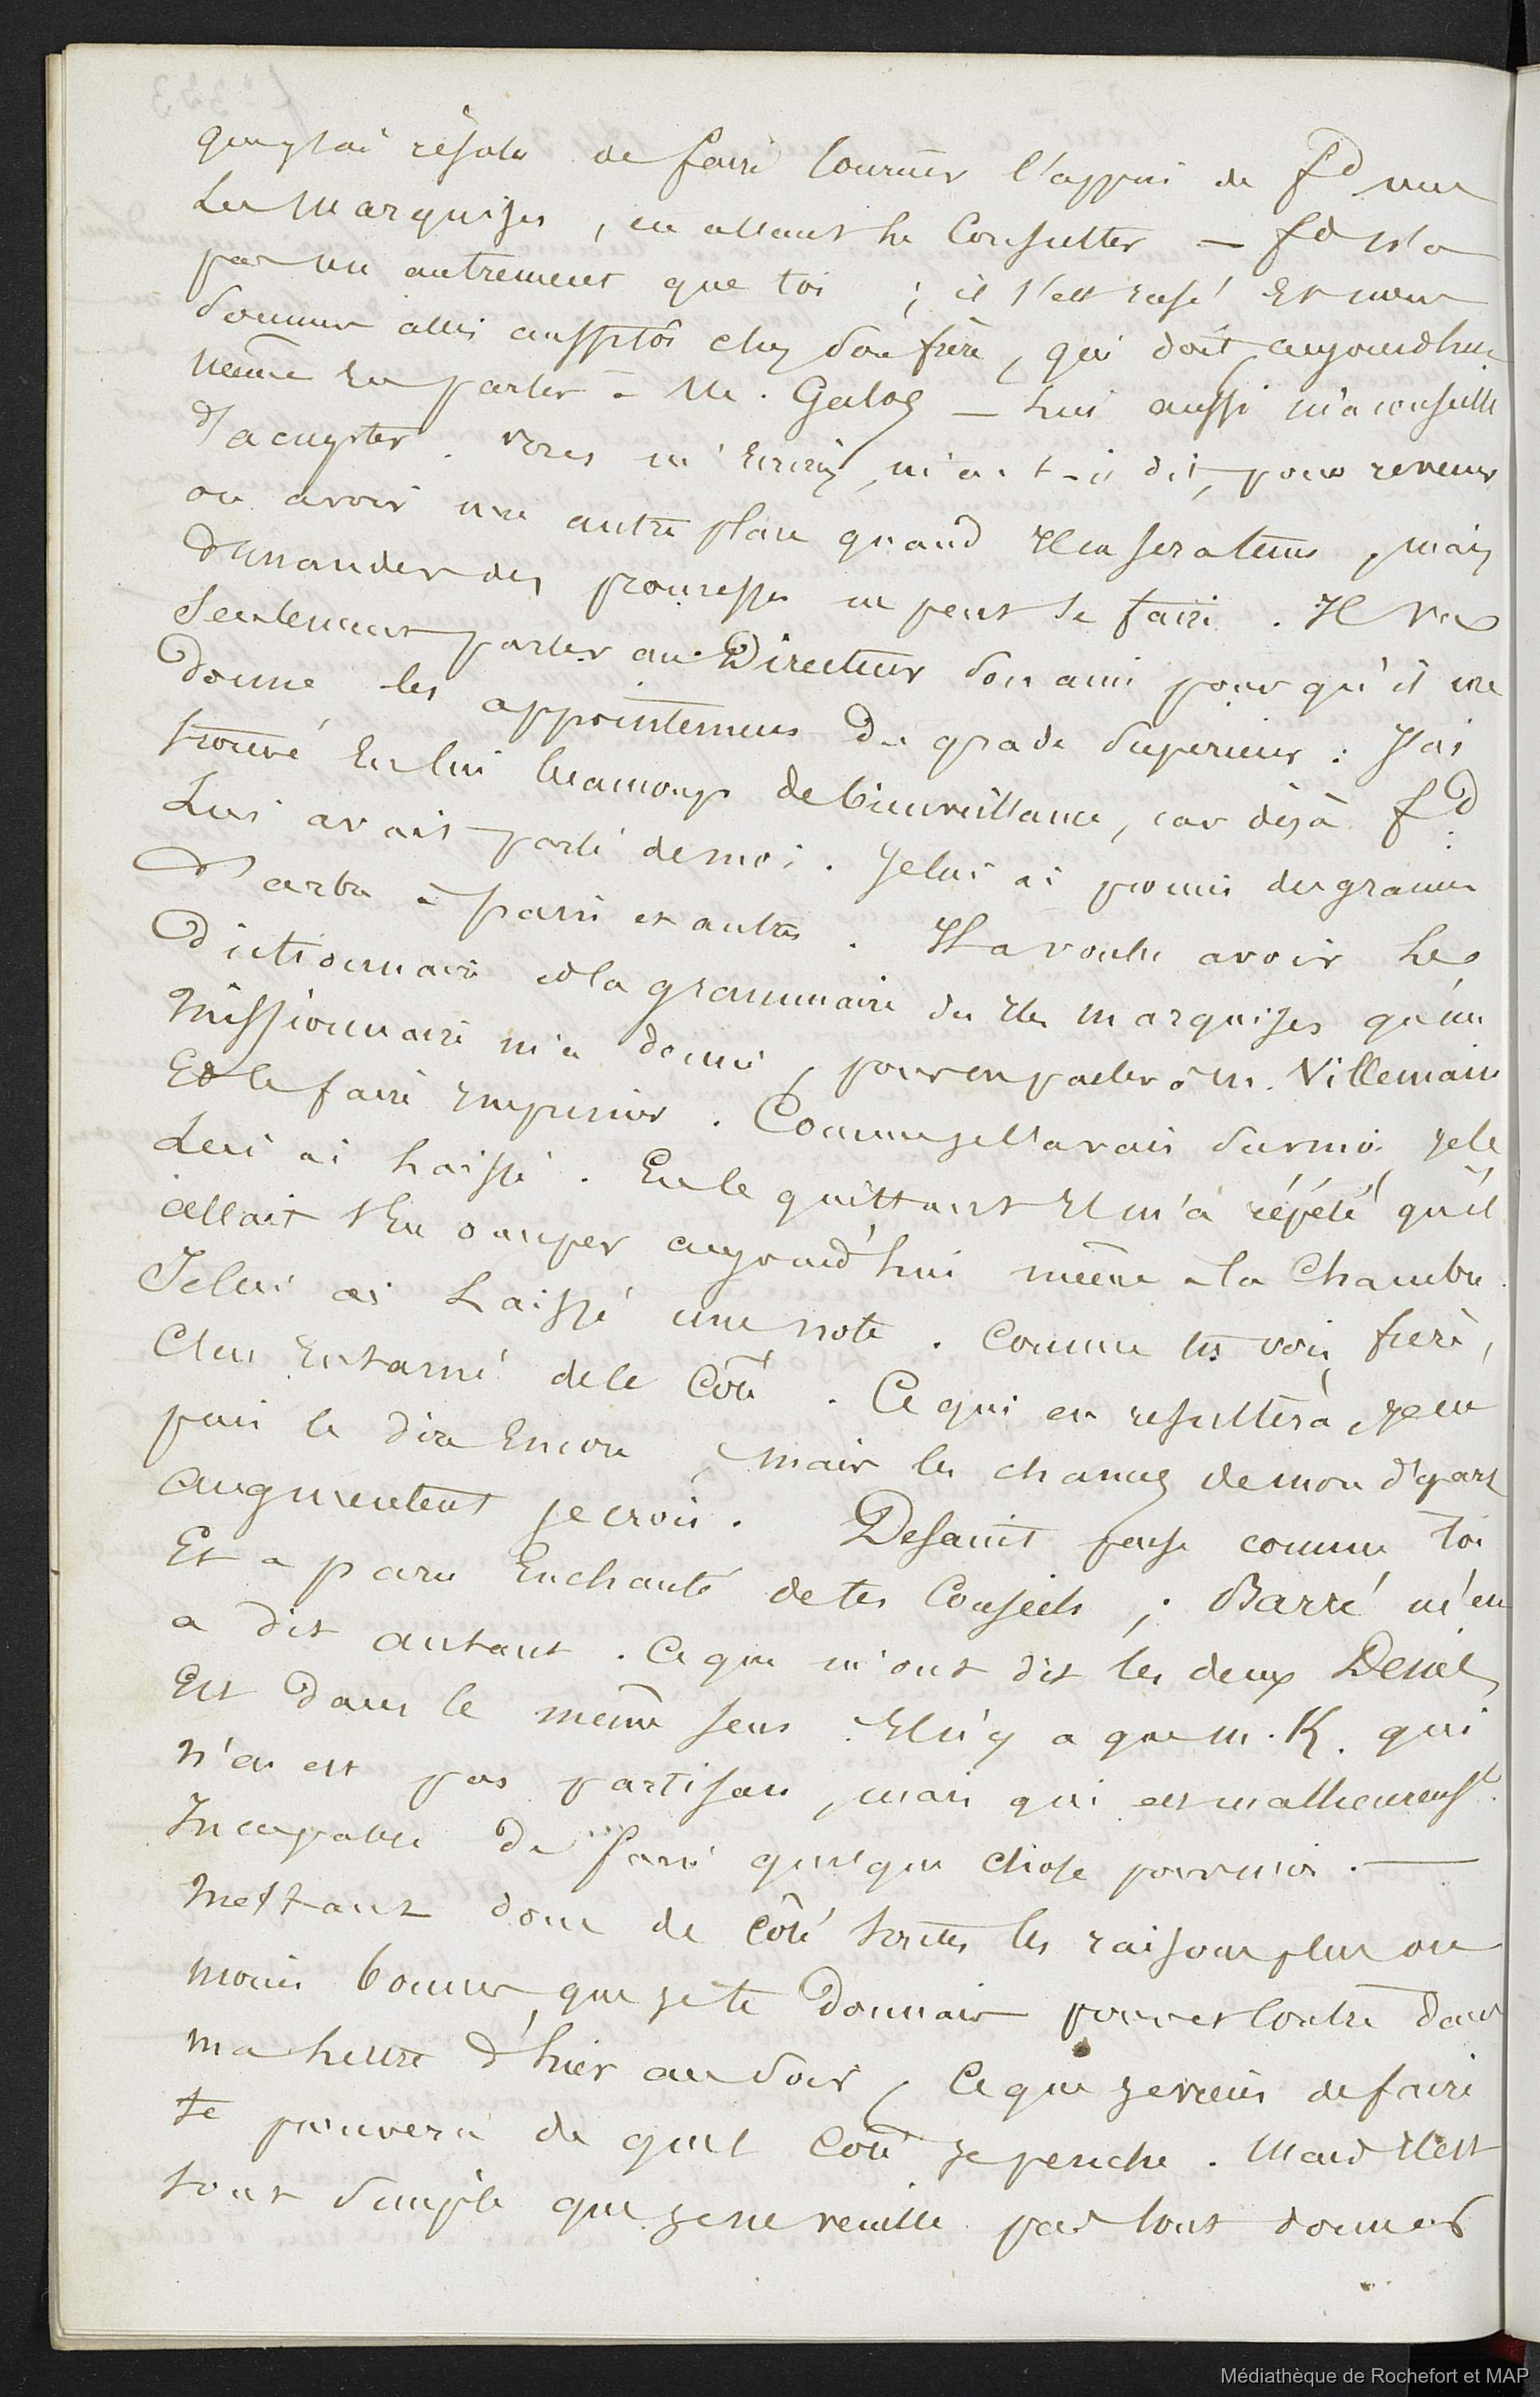 que j'ai résolu de faire tourner l'appui de f.d vers
Les Marquises, en allant le Consulter — f.d n'a
pas vu autrement que toi ; il s'est rasé Et nous
Sommes allés aussitôt chez Son frère, qui doit aujourdhui
même En parler à Mr. Galos — Lui aussi m'a conseillé
d'accepter. Vous m'Ecrirez, m'a-t-il dit, pour revenir
ou avoir une autre place quand Il en sera tems, mais
demander des promesses ne peut se faire. Il va
Seulement parler au Directeur Son ami pour qu'il me
donne les appointemens du grade Supérieur : J'ai
trouvé En lui beaucoup de bienveillance, car déjà f.d
Lui avait parlé de moi. Je lui ai promis des graines
d'arbre à pain et autres. Il a voulu avoir Le
Dictionnaire et la grammaire des Iles Marquises qu'un
Missionnaire m'a donné, pour en parler à M. Villemain
Et le faire Imprimer. Comme je l'avais Sur moi je le
Lui ai Laissé. En le quittant Il m'a répété qu'il
allait s'En occuper aujourd'hui même à la Chambre.
Je lui ai Laissé une note. Comme tu vois, frère,
C'en Entamé de ce Côté. Ce qui en resultera, je ne
puis le dire Encore, mais les chances de mon départ
augmentent je crois. Desaint pense comme toi
Et a paru Enchanté de tes Conseils ; Barré m'en
a dit autant. Ce que m'ont dit les deux Deniel
Est dans le même sens. Il n'y a que M. K. qui
n'en est pas partisan, mais qui est malheureust.
Incapable de faire quelque chose pour moi. —
Mettant donc de Côté toutes les raisons plus ou
moins bonnes que je te Donnais pour et Contre dans
ma Lettre d'hier au Soir, Ce que je viens de faire
te prouvera de quel Côté je penche. Mais Il est
tout Simple que je ne veuille pas tout donner
Médiathèque de Rochefort et MAP